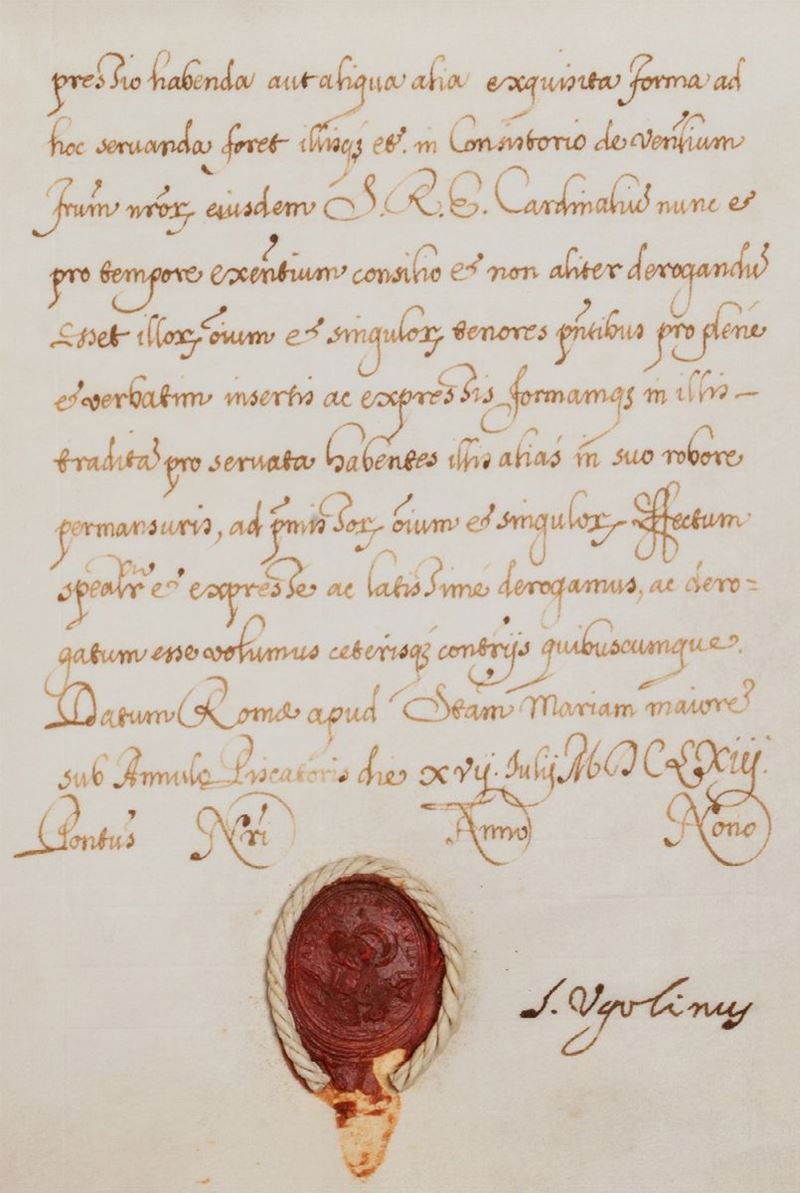 pressio habenda aut aliqua alia exquisita forma ad
hoc servanda foret illisq3 et. in Consistorio de Ven͂lium
fru͂m nr͂oꝝ eiusdem S. R. E. Cardinaliu͂ nunc et
pro tempore exen͂tium consilio et non aliter derogandu͂
Esset illoꝝ o͂ium et singuloꝝ tenores pn͂tibus pro plene
et verbatim insertis ac expressis formamq3 in illis –
tradita͂ pro servata habentes illis alias in suo robore
permansuris, ad p͂missoꝝ o͂ium et singuloꝝ Effectum
spealr͂ et expresse ac latissime derogamus, ac dero=
gatum esse volumus ceterisq3 contr͂ijs quibuscumque.
Datum Romæ apud Sta͂m Mariam maiore͂
sub Annulo Piscatoris die xvij. Julij MDCLXIII.
Pontus͂ Nr͂i Anno Nono
S. Ugolinus